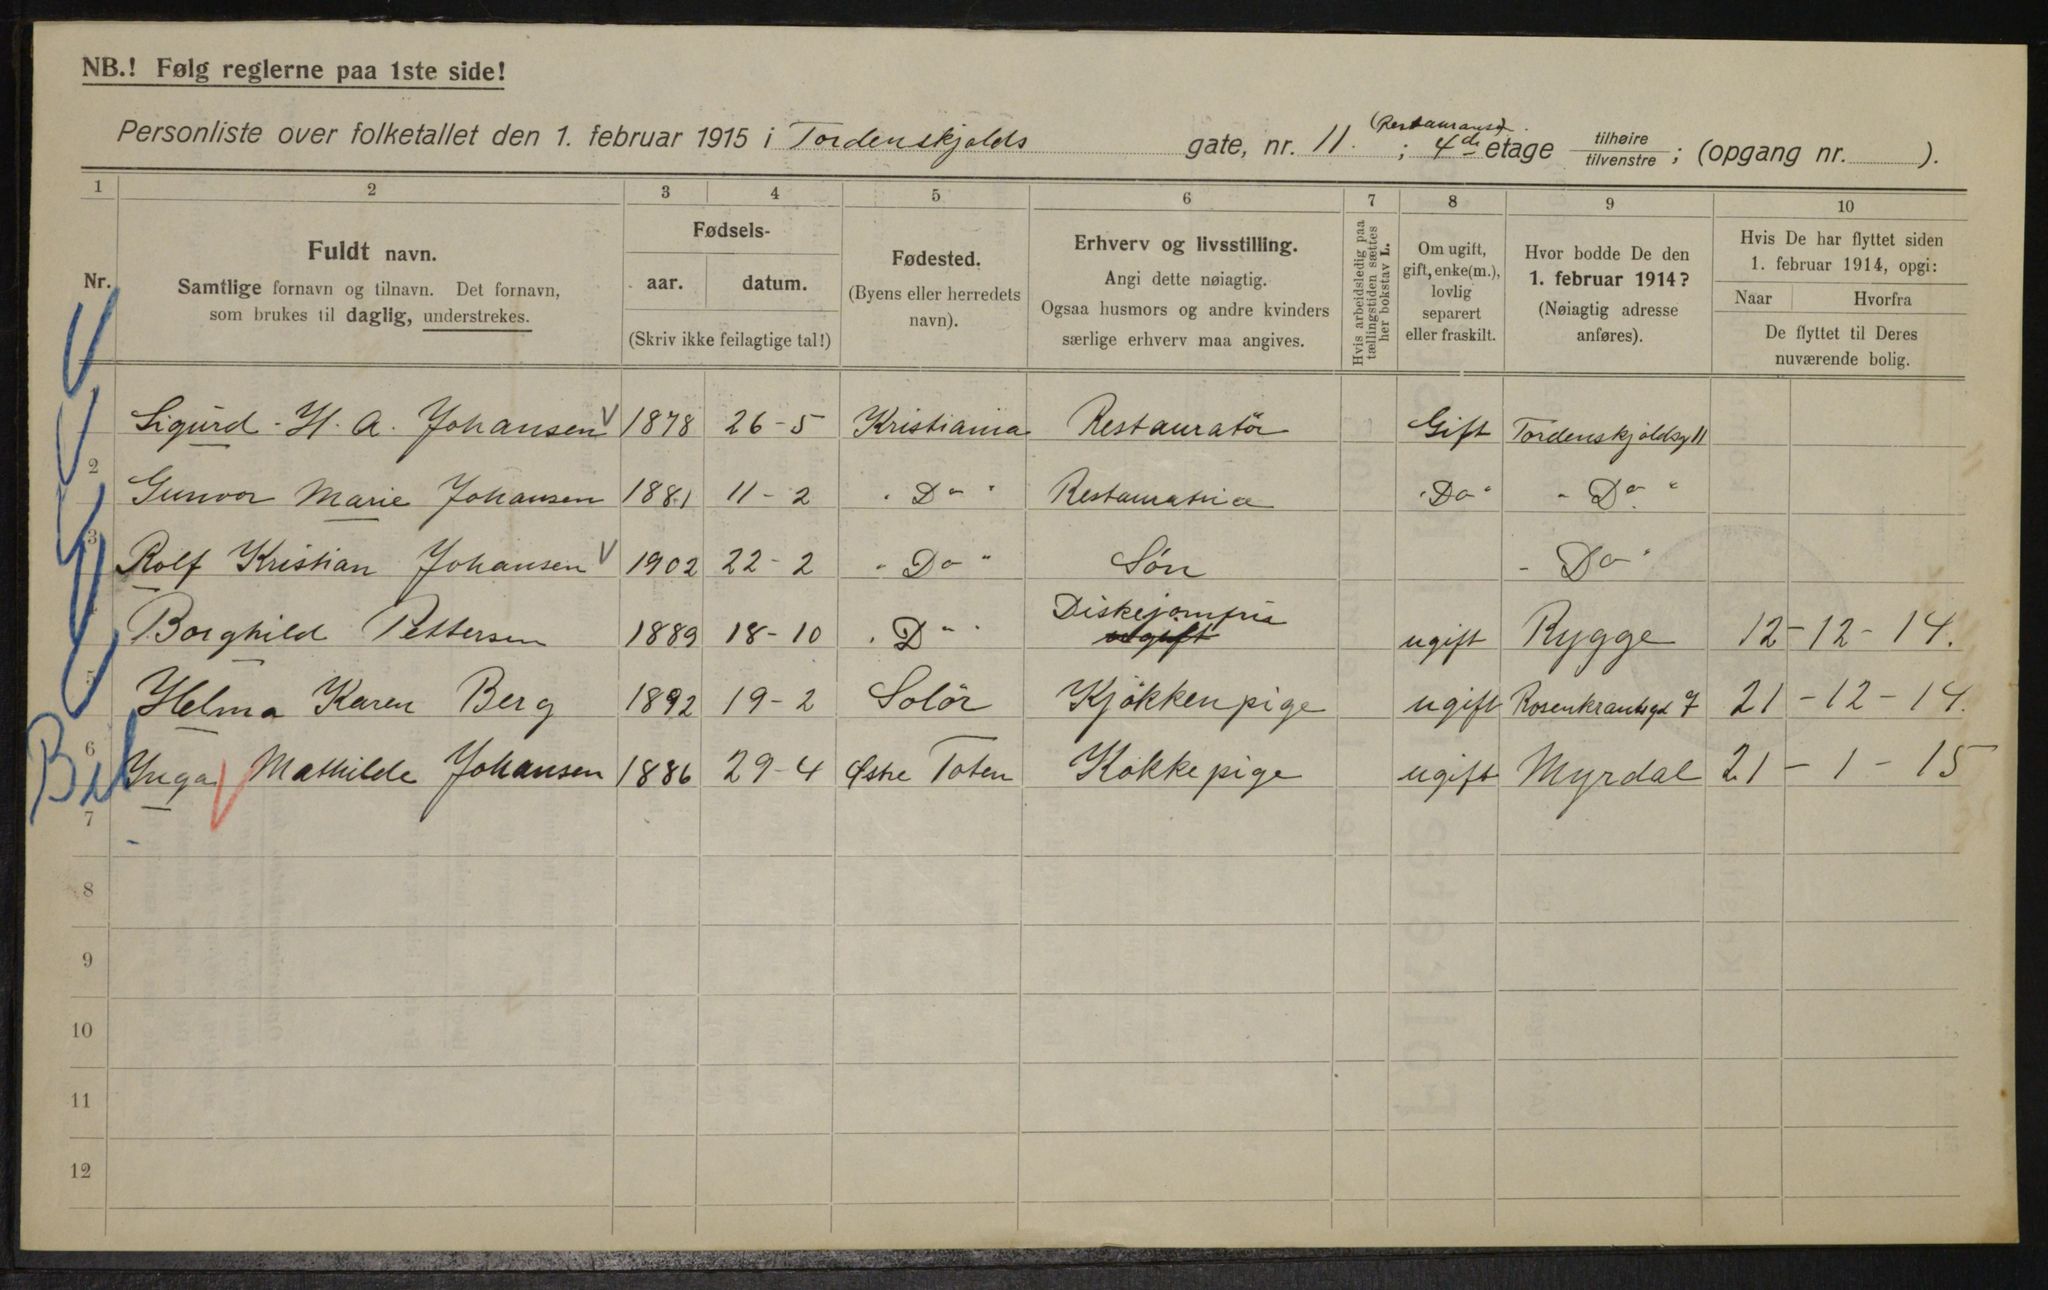 NB.! Følg reglerne paa 1ste side!
(Restaurant).
Personliste over folketallet den 1. februar 1915 i Tordenskjolds gate, nr. 11. ; 4de etage tilhøire / tilvenstre ; (opgang nr. ).
1 2 3 4 5 6 7 8 9 10
Nr.
Fuldt navn.
Samtlige fornavn og tilnavn. Det fornavn,
som brukes til daglig, understrekes.
Fødsels-
aar. datum.
(Skriv ikke feilagtige tal!)
Fødested.
(Byens eller herredets
navn).
Erhverv og livsstilling.
Angi dette nøiagtig.
Ogsaa husmors og andre kvinders
særlige erhverv maa angives.
Hvis arbeidsledig paa
tællingstiden sættes
her bokstav L.
Om ugift,
gift, enke(m.),
lovlig
separert
eller fraskilt.
Hvor bodde De den
1. februar 1914?
(Nøiagtig adresse
anføres).
Hvis De har flyttet siden
1. februar 1914, opgi:
Naar Hvorfra
De flyttet til Deres
nuværende bolig.
Sigurd - H. A. Johansen 1878 26-5 Kristiania Restauratör Gift Tordenskjoldsg 11
2 Gunvor Marie Johansen 1881 11-2 " Do " Restauratrice " Do " " Do "
3 Rolf Kristian Johansen 1902 22-2 " Do " Sön " Do "
Borghild Pettersen 1889 18-10 " D " " Diskejomfru ugift Rygge 12-12-14.
5 Helma Karen Berg 1892 19-2 Solör Kjökkenpige ugift Rosenkrantsgd 7 21-12-14.
6 Inga Mathilde Johansen 1886 29-4 Østre Toten Kokkepige ugift Myrdal 21-1-15
7
8
9
10
11
12